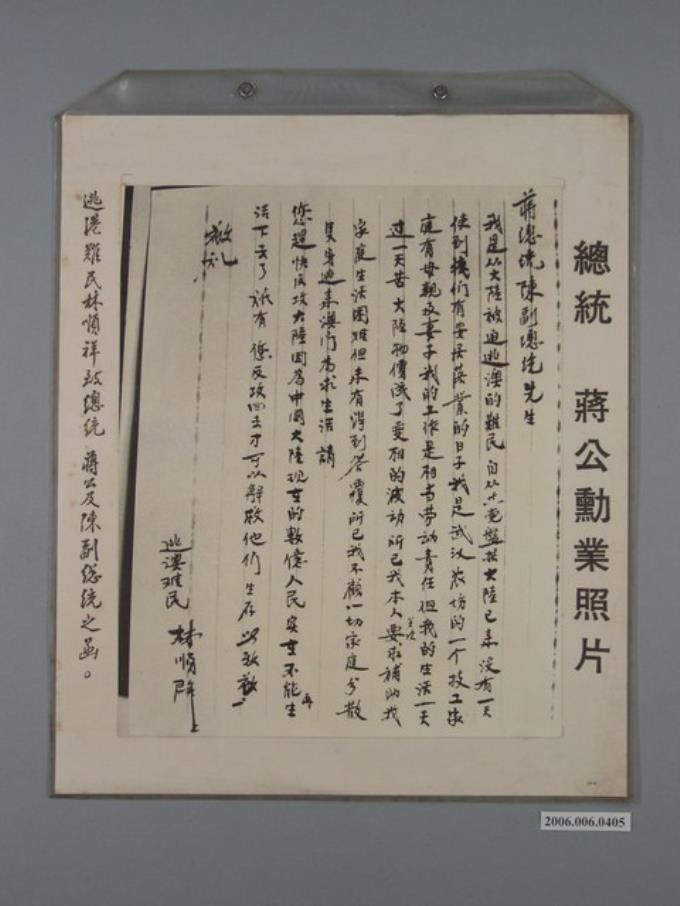 總統 蔣公勳業照片
蔣總統陳副總统先生
我是从大陸被迫逃澳的難民 自从共党盤据大陸已来没有一天
使到我們有安居落業的日子我是武汉 农坊的一个技工家
庭有母親及妻子我的工作是相当劳动責任 但我的生活一天
过一天苦 大陸物價成了变相的波动 所已我本人要求補助我
家庭生活困难但未有得到答覆所已我不顧一切家庭分散
隻身逃来澳门為求生活 請
您趕快反攻大陸因為中国大陸现在的数億人民实在不能再生
活下去了祗有 您反攻回去才可以解救他们生存 以致敬
敬礼
逃澳难民 林順祥上
逃港難民林順祥致總統 蔣公及陳副總統之函。
2006.006.0405